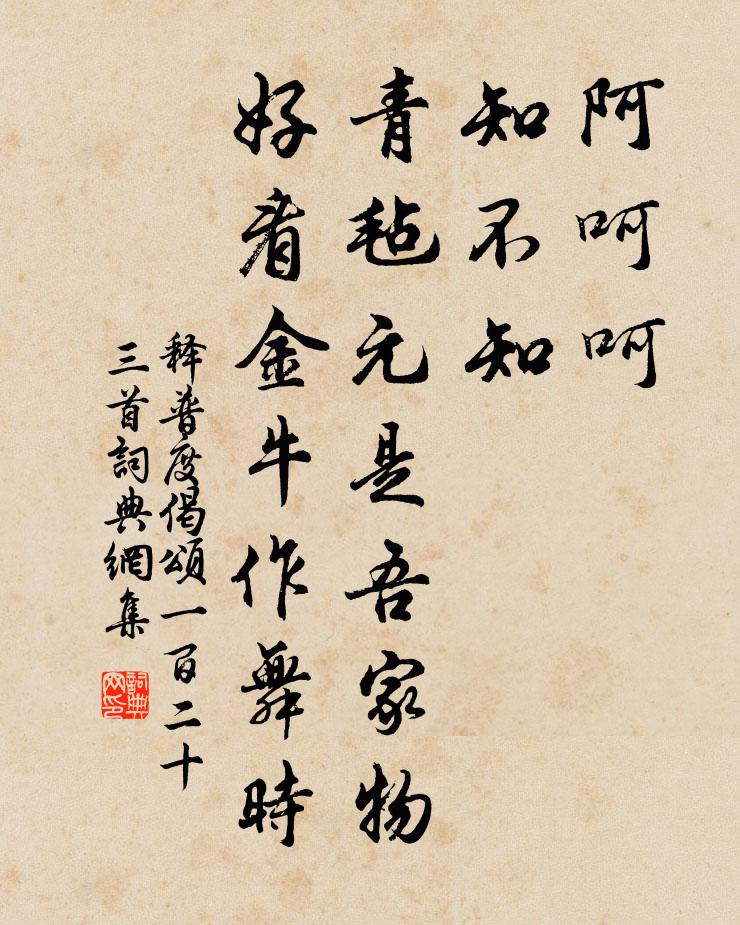 阿呵呵
知不知
青毡元是吾家物
好看金牛作舞時
释普度偈頌一百二十
三首詞典網集
詞典
网印